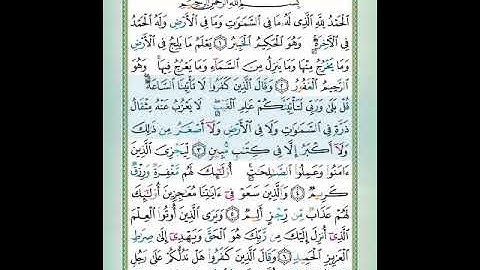 بِسْمِ اللَّهِ الرَّحْمَٰنِ الرَّحِيمِ
الْحَمْدُ لِلَّهِ الَّذِي لَهُ مَا فِي السَّمَاوَاتِ وَمَا فِي الْأَرْضِ وَلَهُ الْحَمْدُ
فِي الْآخِرَةِ وَهُوَ الْحَكِيمُ الْخَبِيرُ ١ يَعْلَمُ مَا يَلِجُ فِي الْأَرْضِ
وَمَا يَخْرُجُ مِنْهَا وَمَا يَنزِلُ مِنَ السَّمَاءِ وَمَا يَعْرُجُ فِيهَا وَهُوَ
الرَّحِيمُ الْغَفُورُ ٢ وَقَالَ الَّذِينَ كَفَرُوا لَا تَأْتِينَا السَّاعَةُ
قُلْ بَلَىٰ وَرَبِّي لَتَأْتِيَنَّكُمْ عَالِمِ الْغَيْبِ لَا يَعْزُبُ عَنْهُ مِثْقَالُ
ذَرَّةٍ فِي السَّمَاوَاتِ وَلَا فِي الْأَرْضِ وَلَا أَصْغَرُ مِن ذَٰلِكَ
وَلَا أَكْبَرُ إِلَّا فِي كِتَابٍ مُّبِينٍ ٣ لِّيَجْزِيَ الَّذِينَ
آمَنُوا وَعَمِلُوا الصَّالِحَاتِ أُولَٰئِكَ لَهُم مَّغْفِرَةٌ وَرِزْقٌ
كَرِيمٌ ٤ وَالَّذِينَ سَعَوْ فِي آيَاتِنَا مُعَاجِزِينَ أُولَٰئِكَ
لَهُمْ عَذَابٌ مِّن رِّجْزٍ أَلِيمٌ ٥ وَيَرَى الَّذِينَ أُوتُوا الْعِلْمَ
الَّذِي أُنزِلَ إِلَيْكَ مِن رَّبِّكَ هُوَ الْحَقَّ وَيَهْدِي إِلَىٰ صِرَاطِ
الْعَزِيزِ الْحَمِيدِ ٦ وَقَالَ الَّذِينَ كَفَرُوا هَلْ نَدُلُّكُمْ عَلَىٰ رَجُلٍ